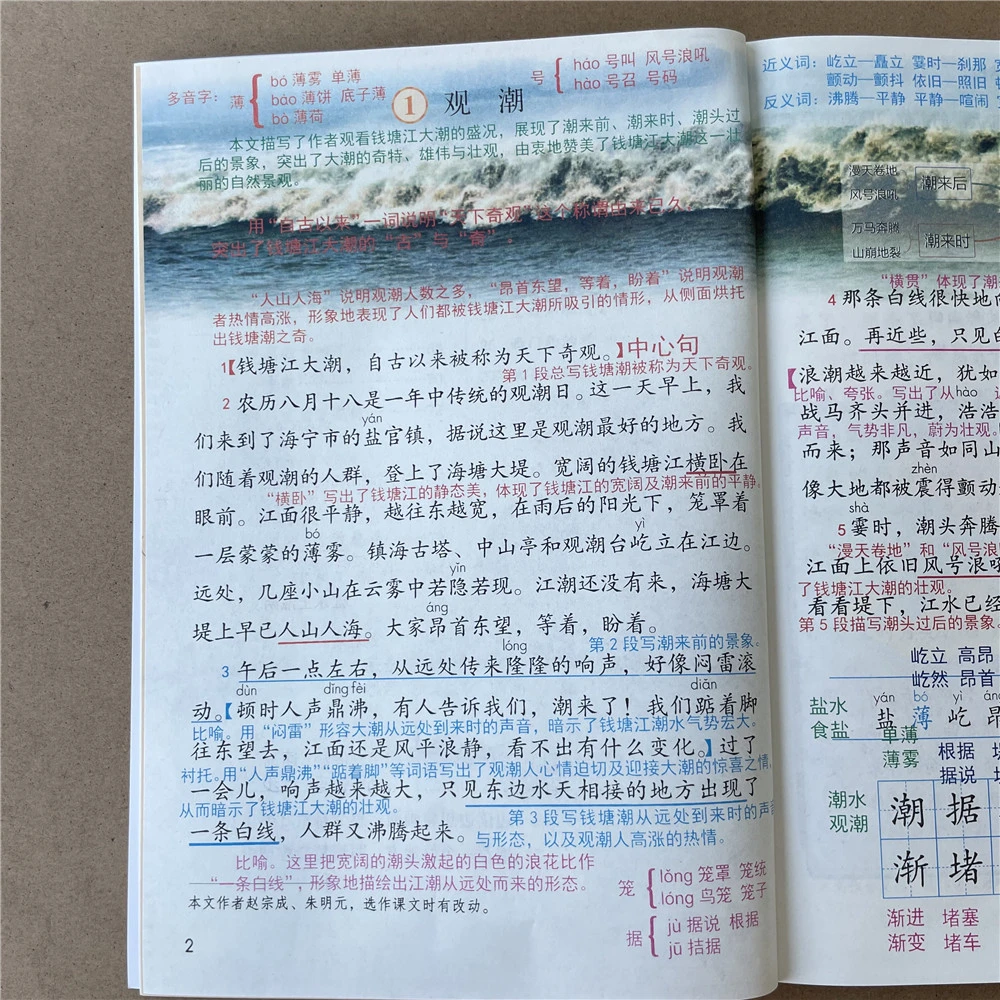 多音字：薄
bó 薄雾 单薄
báo 薄饼 底子薄
bò 薄荷
号
háo 号叫 风号浪吼
hào 号召 号码
1 观 潮
本文描写了作者观看钱塘江大潮的盛况，展现了潮来前、潮来时、潮头过
后的景象，突出了大潮的奇特、雄伟与壮观，由衷地赞美了钱塘江大潮这一壮
丽的自然景观。
用“自古以来”一词说明“天下奇观”这个称谓由来已久，
突出了钱塘江大潮的“古”与“奇”。
“人山人海”说明观潮人数之多，“昂首东望，等着，盼着”说明观潮
者热情高涨，形象地表现了人们都被钱塘江大潮所吸引的情形，从侧面烘托
出钱塘潮之奇。
1【钱塘江大潮，自古以来被称为天下奇观。】中心句
第1段总写钱塘潮被称为天下奇观。
2 农历八月十八是一年中传统的观潮日。这一天早上，我
yán
们来到了海宁市的盐官镇，据说这里是观潮最好的地方。我
们随着观潮的人群，登上了海塘大堤。宽阔的钱塘江横卧在
“横卧”写出了钱塘江的静态美，体现了钱塘江的宽阔及潮来前的平静。
眼前。江面很平静，越往东越宽，在雨后的阳光下，笼罩着
bó yì
一层蒙蒙的薄雾。镇海古塔、中山亭和观潮台屹立在江边。
yǐn
远处，几座小山在云雾中若隐若现。江潮还没有来，海塘大
áng
堤上早已人山人海。大家昂首东望，等着，盼着。
第2段写潮来前的景象。
lóng
3 午后一点左右，从远处传来隆隆的响声，好像闷雷滚
dùn dǐng fèi diǎn
动。【顿时人声鼎沸，有人告诉我们，潮来了！我们踮着脚
比喻。用“闷雷”形容大潮从远处到来时的声音，暗示了钱塘江潮水气势宏大。
往东望去，江面还是风平浪静，看不出有什么变化。】过了
衬托。用“人声鼎沸”“踮着脚”等词语写出了观潮人心情迫切及迎接大潮的惊喜之情，
一会儿，响声越来越大，只见东边水天相接的地方出现了
从而暗示了钱塘江大潮的壮观。
第3段写钱塘潮从远处到来时的声音
一条白线，人群又沸腾起来。
与形态，以及观潮人高涨的热情。
比喻。这里把宽阔的潮头激起的白色的浪花比作
“一条白线”，形象地描绘出江潮从远处而来的形态。
本文作者赵宗成、朱明元，选作课文时有改动。
笼
lǒng 笼罩 笼统
lóng 鸟笼 笼子
据
jù 据说 根据
jū 拮据
2
近义词：屹立—矗立 霎时—刹那
颤动—颤抖 依旧—照旧
反义词：沸腾—平静 平静—喧闹
漫天卷地
风号浪吼
潮来后
万马奔腾
山崩地裂
潮来时
“横贯”体现了潮
4 那条白线很快地向
江面。再近些，只见白
【浪潮越来越近，犹如
比喻、夸张。写出了从
hào
战马齐头并进，浩浩
声音，气势非凡，蔚为壮观。
而来；那声音如同山
zhèn
像大地都被震得颤动
shà
5 霎时，潮头奔腾
“漫天卷地”和“风号浪
江面上依旧风号浪吼
了钱塘江大潮的壮观。
看看堤下，江水已经
第5段描写潮头过后的景象。
屹立 高昂
屹然 昂首
盐水
食盐
yán bó yì áng
盐 薄 屹 昂
单薄
薄雾
根据
据说
潮水
观潮
潮 据
渐 堵
渐进 堵塞
渐变 堵车